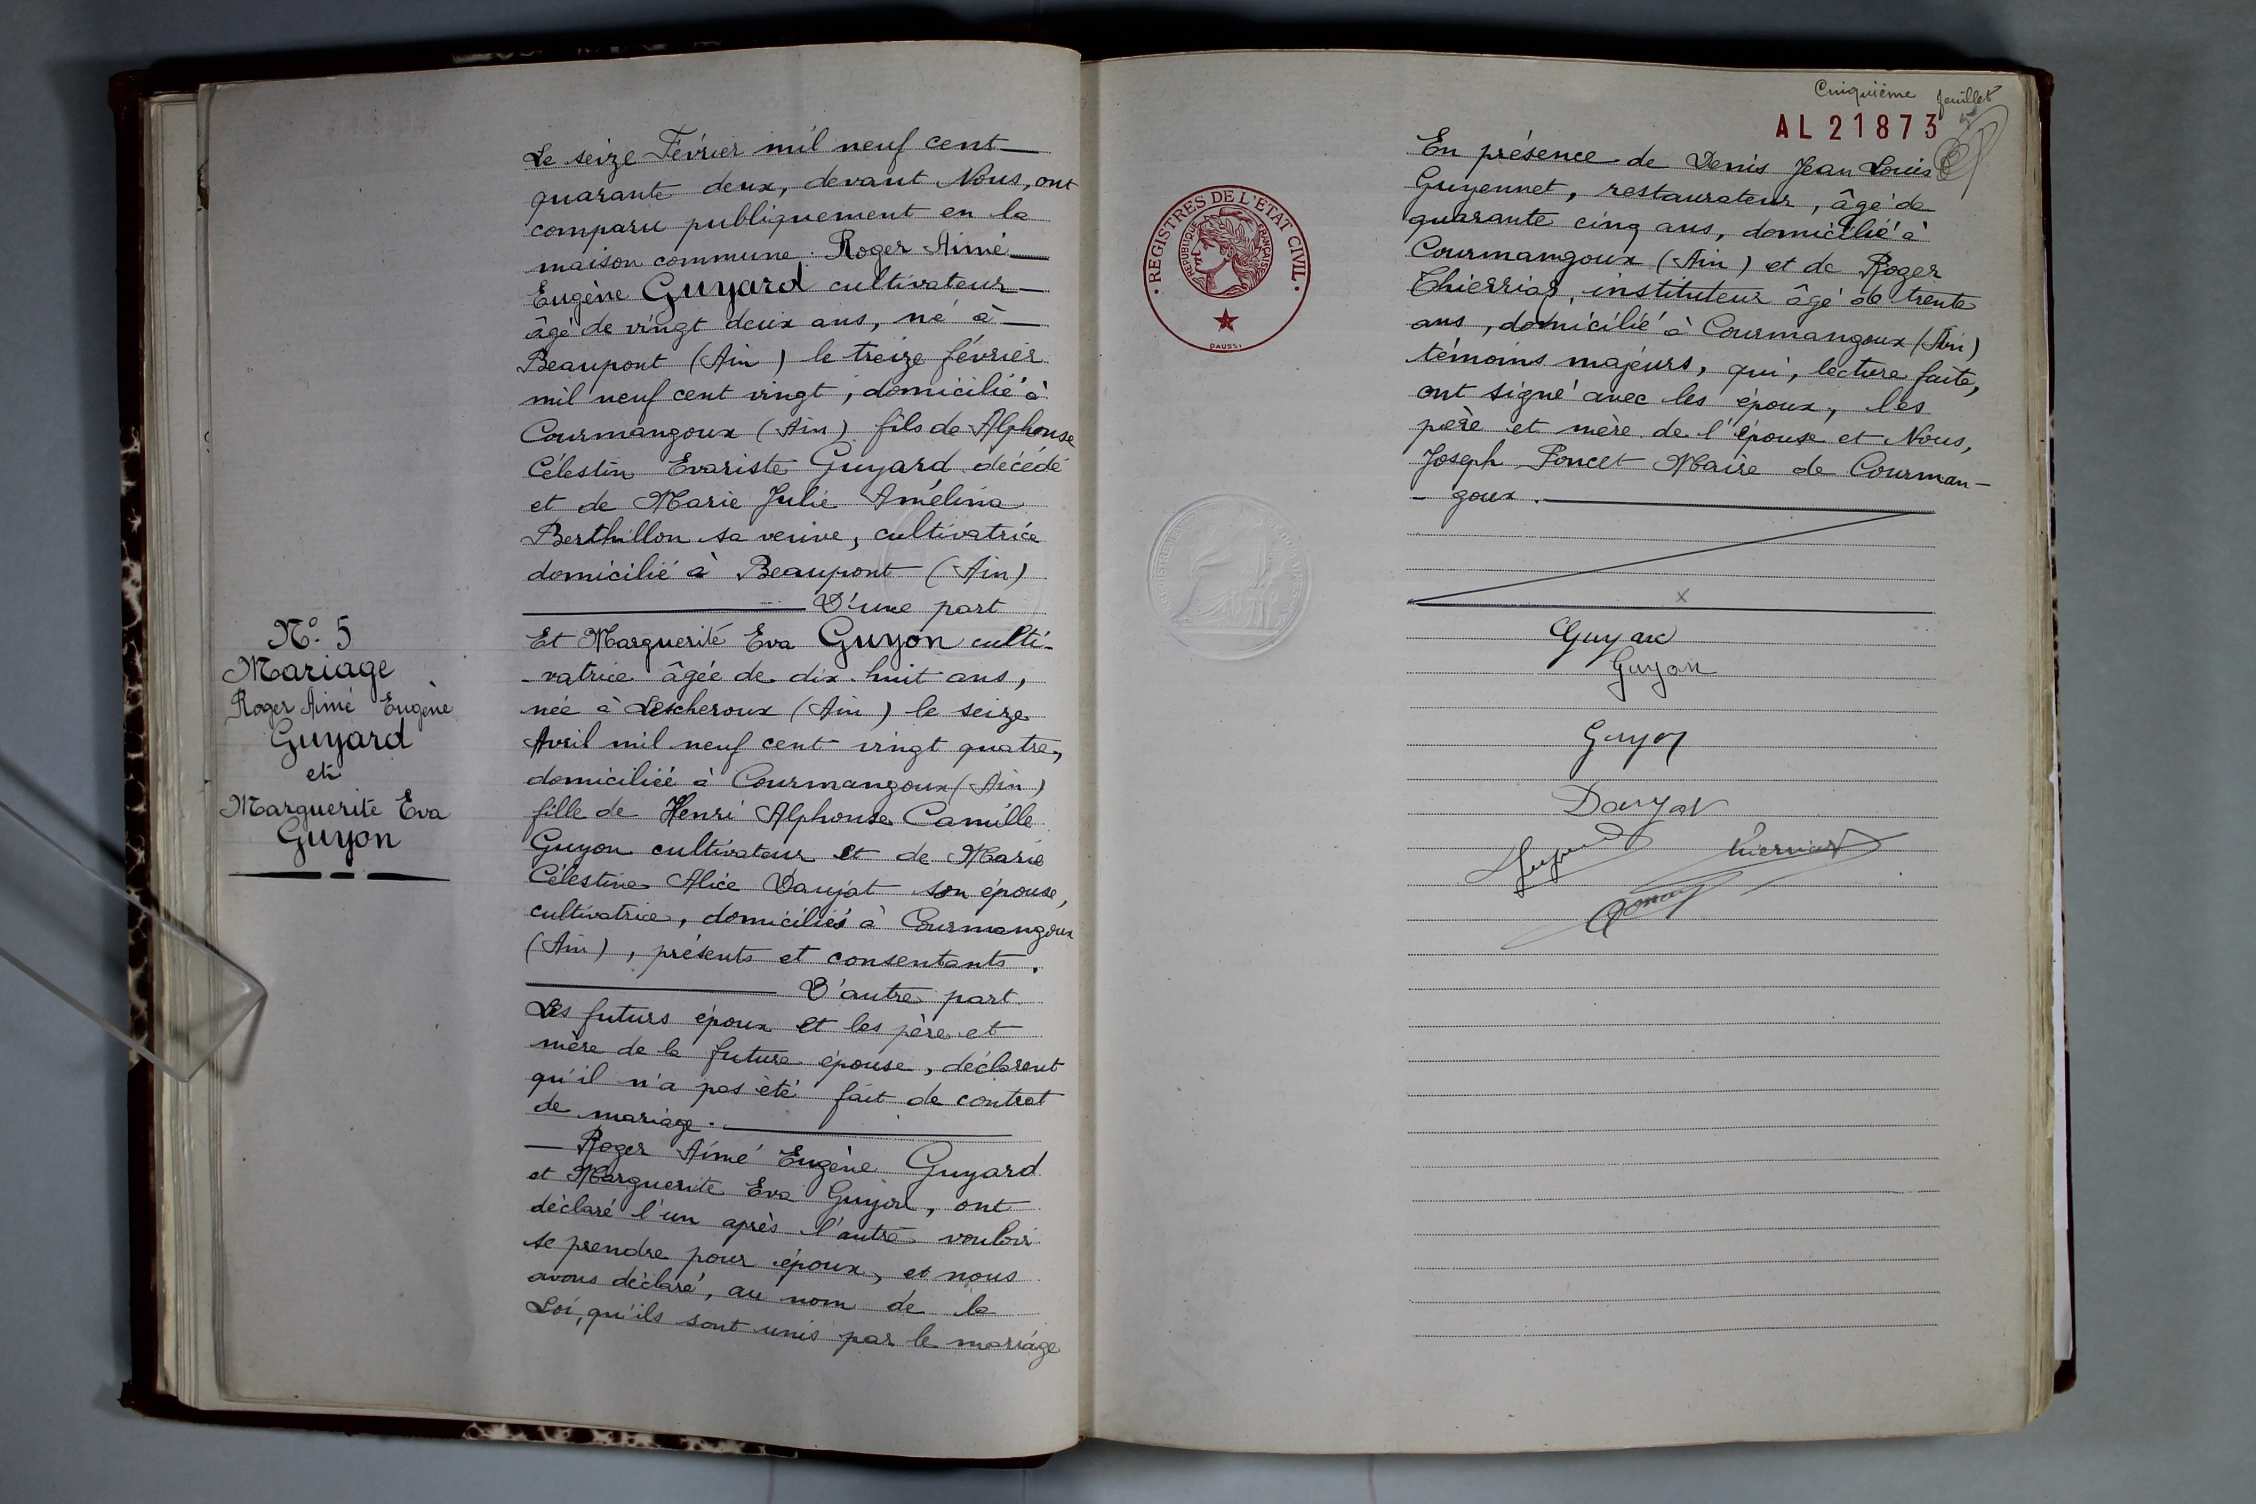 Le seize Février mil neuf cent
quarante deux, devant Nous, ont
comparu publiquement en la
maison commune Roger Aimé
Eugène Guyard cultivateur
âgé de vingt deux ans, né à
Beaupont (Ain) le treize février
mil neuf cent vingt, domicilié à
Courmangoux (Ain) fils de Alphonse
Célestin Evariste Guyard décédé
et de Marie Julie Amélina
Berthillon sa veuve, cultivatrice
domicilié à Beaupont (Ain)
D'une part
N° 5
Mariage
Roger Aimé Eugène
Guyard
et
Marguerite Eva
Guyon
Et Marguerite Eva Guyon culti-
-vatrice âgée de dix-huit ans,
née à Lescheroux (Ain) le seize
Avril mil neuf cent vingt quatre,
domiciliée à Courmangoux (Ain)
fille de Henri Alphonse Camille
Guyon cultivateur et de Marie
Célestine Alice Daujat son épouse,
cultivatrice, domiciliés à Courmangoux
(Ain), présents et consentants.
D'autre part
Les futurs époux et les père et
mère de la future épouse, déclarent
qu'il n'a pas été fait de contrat
de mariage.
— Roger Aimé Eugène Guyard
et Marguerite Eva Guyon, ont
déclaré l'un après l'autre vouloir
se prendre pour époux, et nous
avons déclaré, au nom de la
Loi, qu'ils sont unis par le mariage
Cinquième feuillet
AL 21873
REGISTRES DE L'ETAT CIVIL
REPUBLIQUE FRANÇAISE
DAUSSI
En présence de Denis Jean Louis
Guyennet, restaurateur, âgé de
quarante cinq ans, domicilié à
Courmangoux (Ain) et de Roger
Thierriaz, instituteur âgé de trente
ans, domicilié à Courmangoux (Ain)
témoins majeurs, qui, lecture faite,
ont signé avec les époux, les
père et mère de l'épouse et Nous,
Joseph Poncet Maire de Courman-
- goux.
x
Guyard
Guyon
Guyon
Daujat